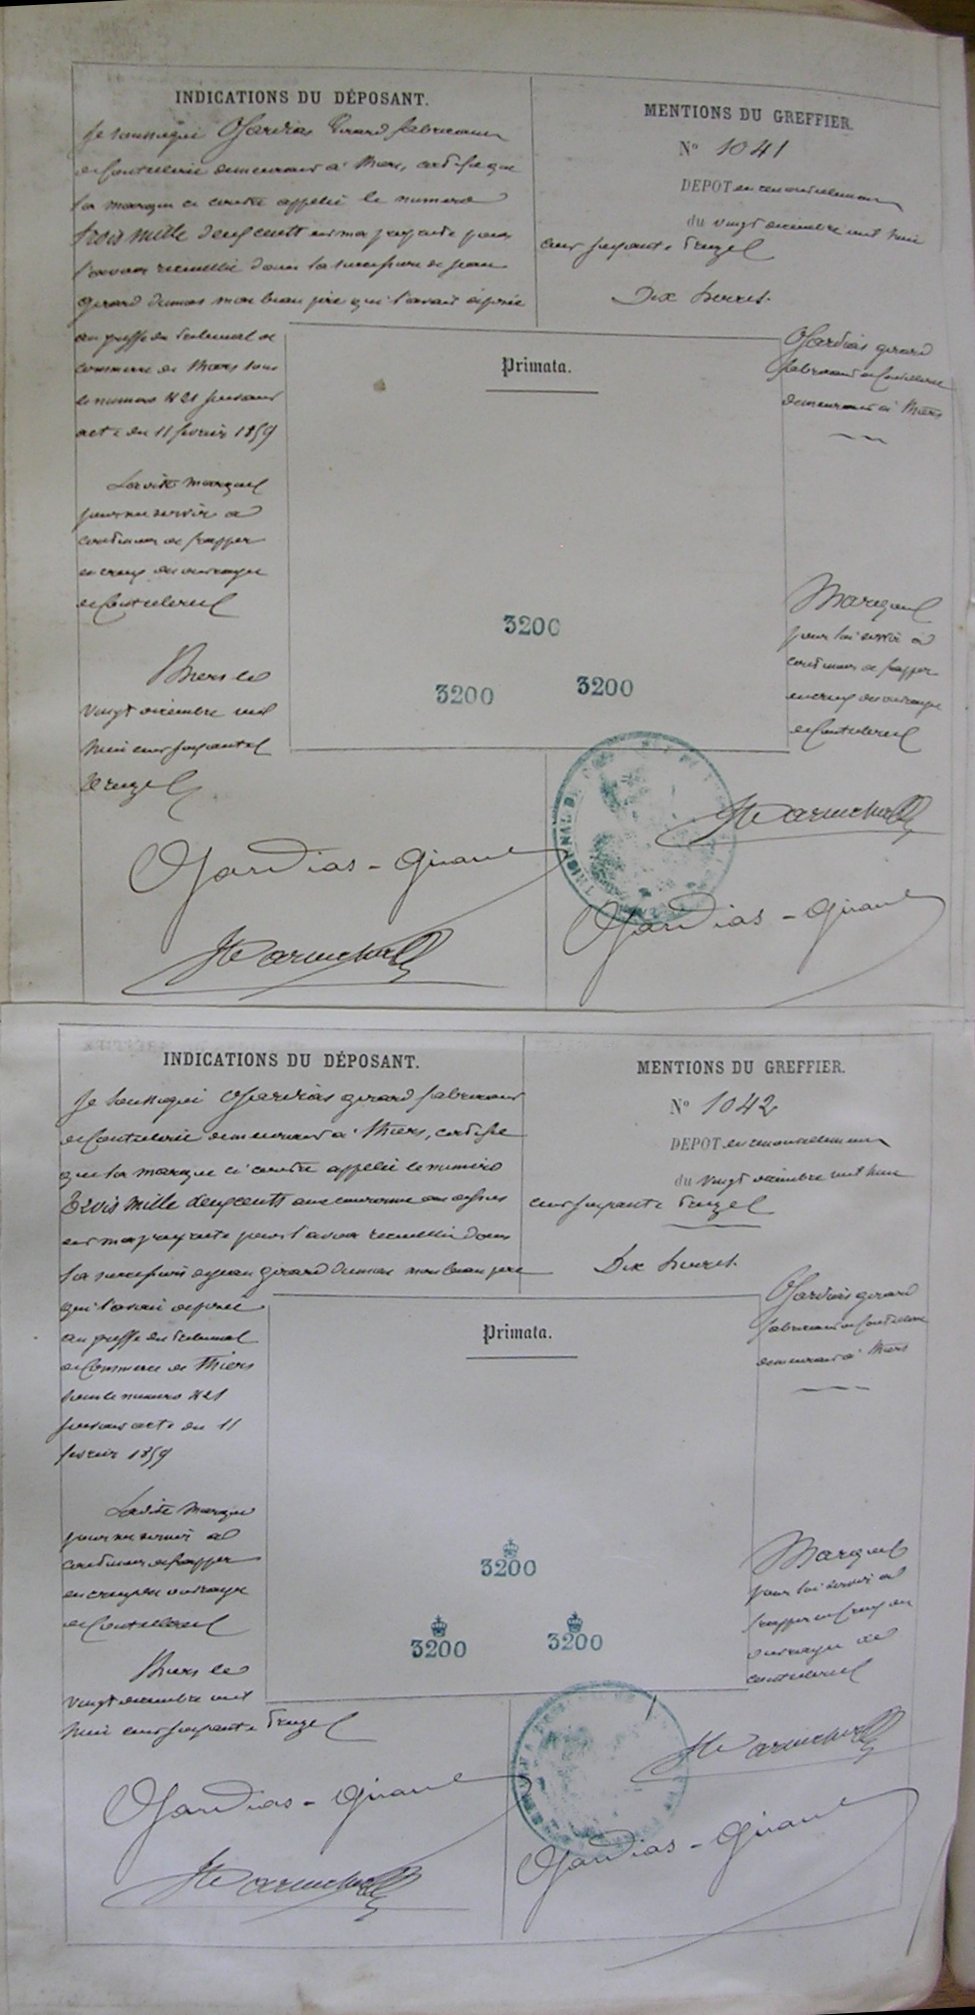 INDICATIONS DU DÉPOSANT.
Je soussigné Ojardias Girard fabricant
de Coutellerie demeurant à Thiers, certifie que
la marque ci contre appelée le numéro
trois mille deux cents est ma propriété pour
l'avoir recueillie dans la succession de Jean
Girard Dumas mon beau père qui l'avait déposée
au greffe du tribunal de
commerce de Thiers sous
le numéro 421 suivant
acte du 11 février 1859
Ladite marque
pour me servir à
continuer de frapper
en creux des ouvrages
de Coutellerie
Thiers le
vingt décembre mil
huit cent soixante
treize
Ojardias - Girard
MENTIONS DU GREFFIER.
N° 1041
DEPOT en renouvellement
du vingt décembre mil huit
cent soixante treize
Dix heures.
Ojardias girard
fabricant de Coutellerie
demeurant à Thiers
Primata.
3200
3200 3200
Marque
pour lui servir à
continuer de frapper
en creux des ouvrages
de Coutellerie
Ojardias - Girard
INDICATIONS DU DÉPOSANT.
Je soussigné Ojardias girard fabricant
de Coutellerie demeurant à Thiers, certifie
que la marque ci contre appelée le numéro
Trois mille deux cents une couronne au dessus
est ma propriété pour l'avoir recueillie dans
la succession de jean girard dumas mon beau père
qui l'avait déposée
au greffe du tribunal
de Commerce de Thiers
sous le numéro 421
suivant acte du 11
février 1859
Ladite marque
pour me servir à
continuer de frapper
en creux des ouvrages
de Coutellerie
Thiers le
vingt décembre mil
huit cent soixante treize
Ojardias - Girard
MENTIONS DU GREFFIER.
N° 1042
DEPOT en renouvellement
du vingt décembre mil huit
cent soixante treize
Dix heures.
Ojardias girard
fabricant de Coutellerie
demeurant à Thiers
Primata.
3200
3200 3200
Marque
pour lui servir à
frapper en creux des
ouvrages de
coutellerie
Ojardias - Girard